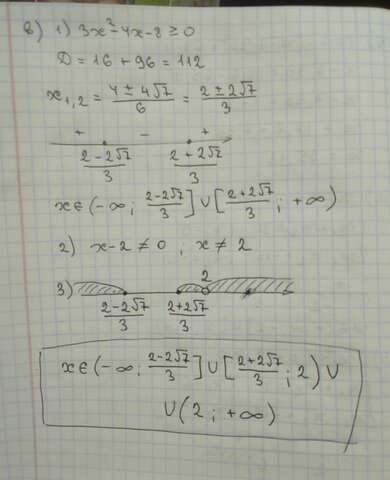 в) 1) 3x² - 4x - 8 ≥ 0
D = 16 + 96 = 112
x₁,₂ = (4 ± 4√7)/6 = (2 ± 2√7)/3
+ - +
(2 - 2√7)/3 (2 + 2√7)/3
x ∈ (-∞; (2 - 2√7)/3] ∪ [(2 + 2√7)/3; +∞)
2) x - 2 ≠ 0, x ≠ 2
3) 2
(2 - 2√7)/3 (2 + 2√7)/3
x ∈ (-∞; (2 - 2√7)/3] ∪ [(2 + 2√7)/3; 2) ∪
∪ (2; +∞)